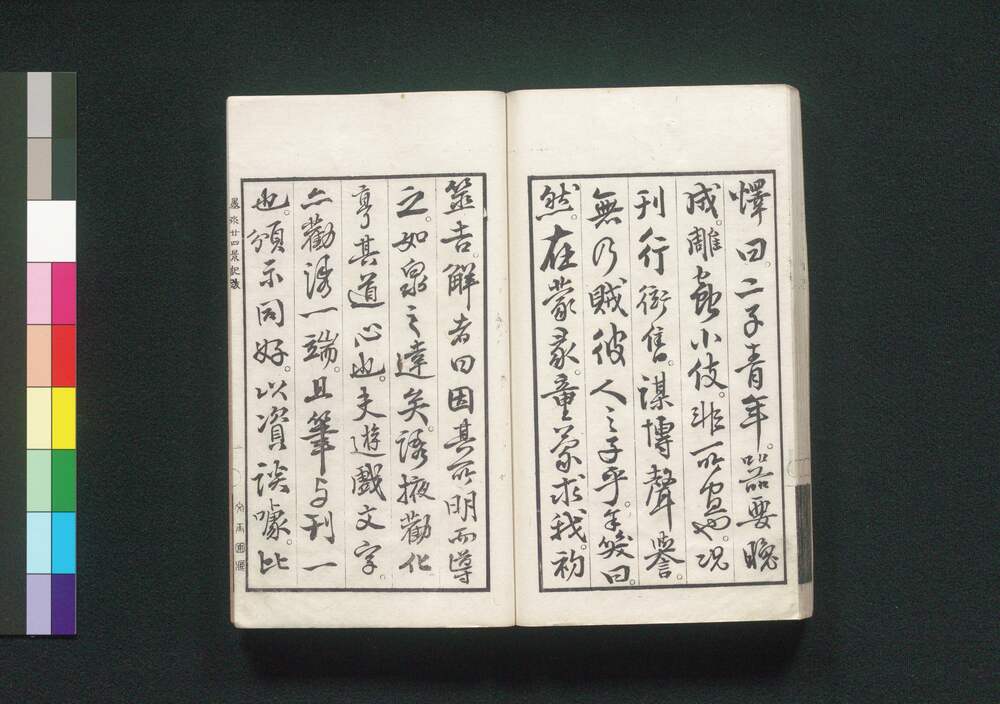 懌曰。二子青年。器要晚
成。雕蟲小伎。非所宜也。况
刊行衒售。謀博聲譽。
無乃賊彼人之子乎。余笑曰。
然。在蒙彖。童蒙求我。初
筮吉。解者曰因其所明而導
之。如泉之達矣。誘掖勸化
享其道心也。夫遊戲文字。
亦勸誘一端。且筆与刊一
也。頒示同好。以資談噱。比
墨水廿四景記